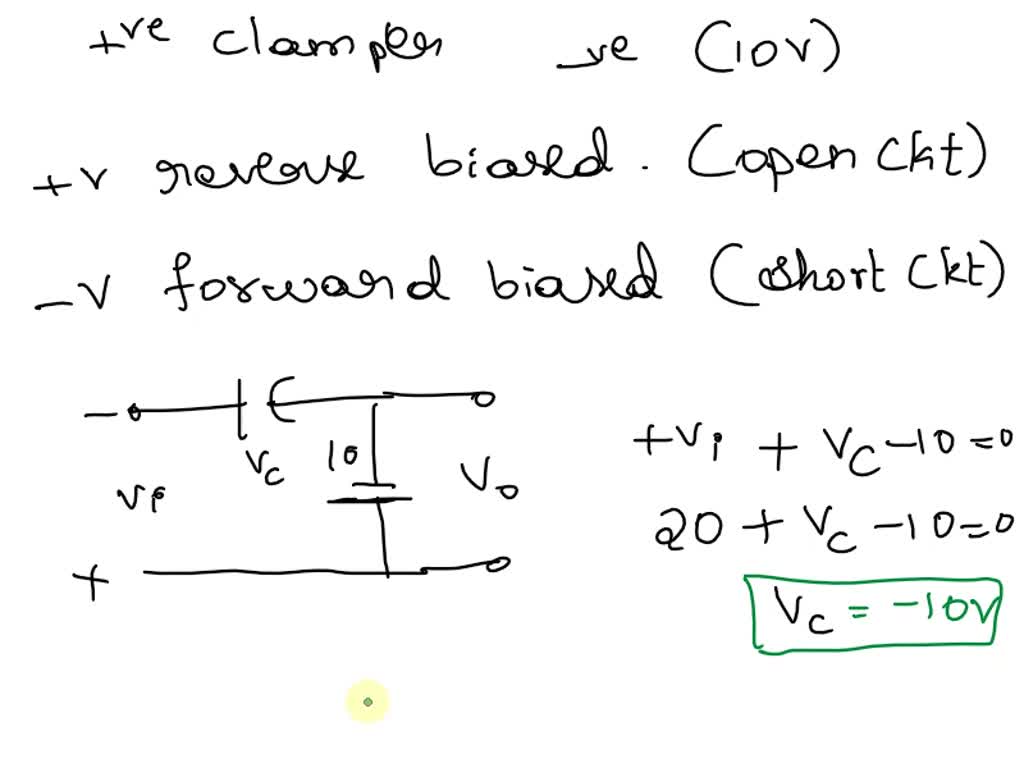 +ve clamper -ve (10V)
+V reverse biased. (open ckt)
-V forward biased (short ckt)
-
Vc 10 Vo
Vi
+
+Vi + Vc - 10 = 0
20 + Vc - 10 = 0
Vc = -10V